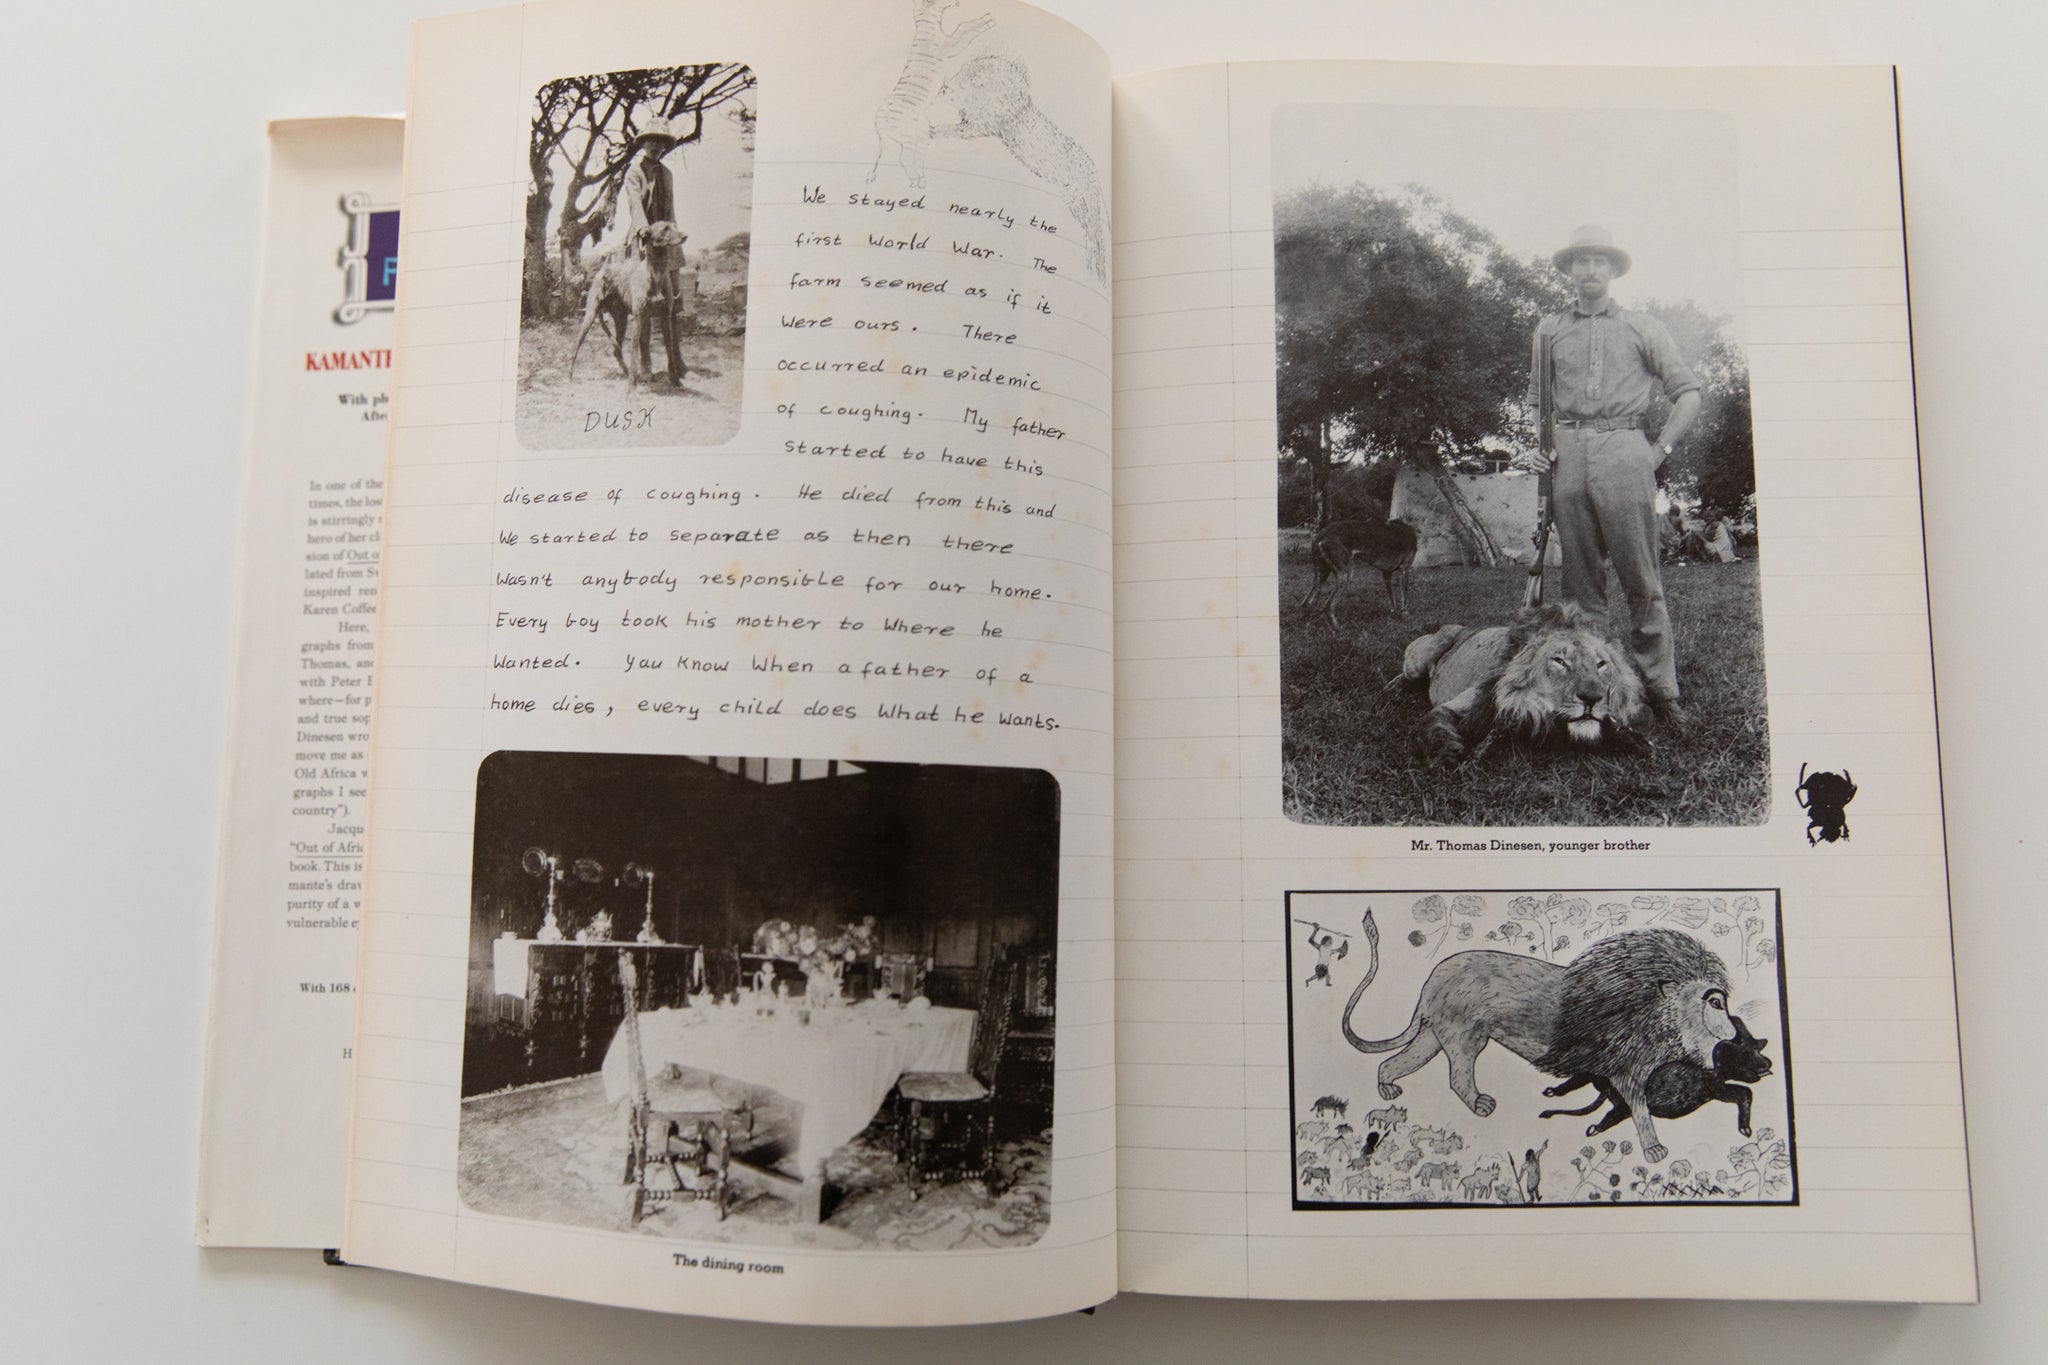 KAMANTE
With ph
Afte
In one of the
times, the los
is stirringly
hero of her cl
sion of Out o
lated from Sw
inspired ren
Karen Coffee
Here,
graphs from
Thomas, and
with Peter B
where—for p
and true sop
Dinesen wro
move me as
Old Africa w
graphs I see
country").
Jacqu
"Out of Afric
book. This is
mante's draw
purity of a w
vulnerable ey
With 168
H
DUSK
We stayed nearly the
first World War. The
farm seemed as if it
Were ours. There
occurred an epidemic
of coughing. My father
started to have this
disease of coughing. He died from this and
We started to separate as then there
Wasn't anybody responsible for our home.
Every boy took his mother to Where he
Wanted. You Know When a father of a
home dies, every child does What he Wants.
The dining room
Mr. Thomas Dinesen, younger brother